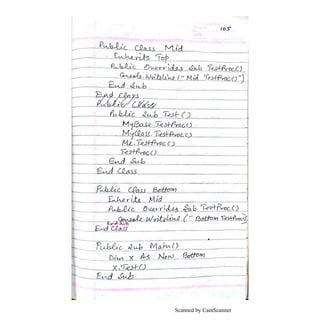 105
Public Class Mid
Inherits Top
Public Overrides Sub TestProc()
Console.Writeline("Mid TestProc()")
End Sub
End Class
Public Class
Public Sub Test()
MyBase.TestProc()
MyClass.TestProc()
Me.TestProc()
TestProc()
End Sub
End Class
Public Class Bottom
Inherits Mid
Public Overrides Sub TestProc()
Console.Writeline("Bottom TestProc()
End Sub
End Class
Public Sub Main()
Dim x As New Bottom
x.Test()
End Sub
Scanned by CamScanner